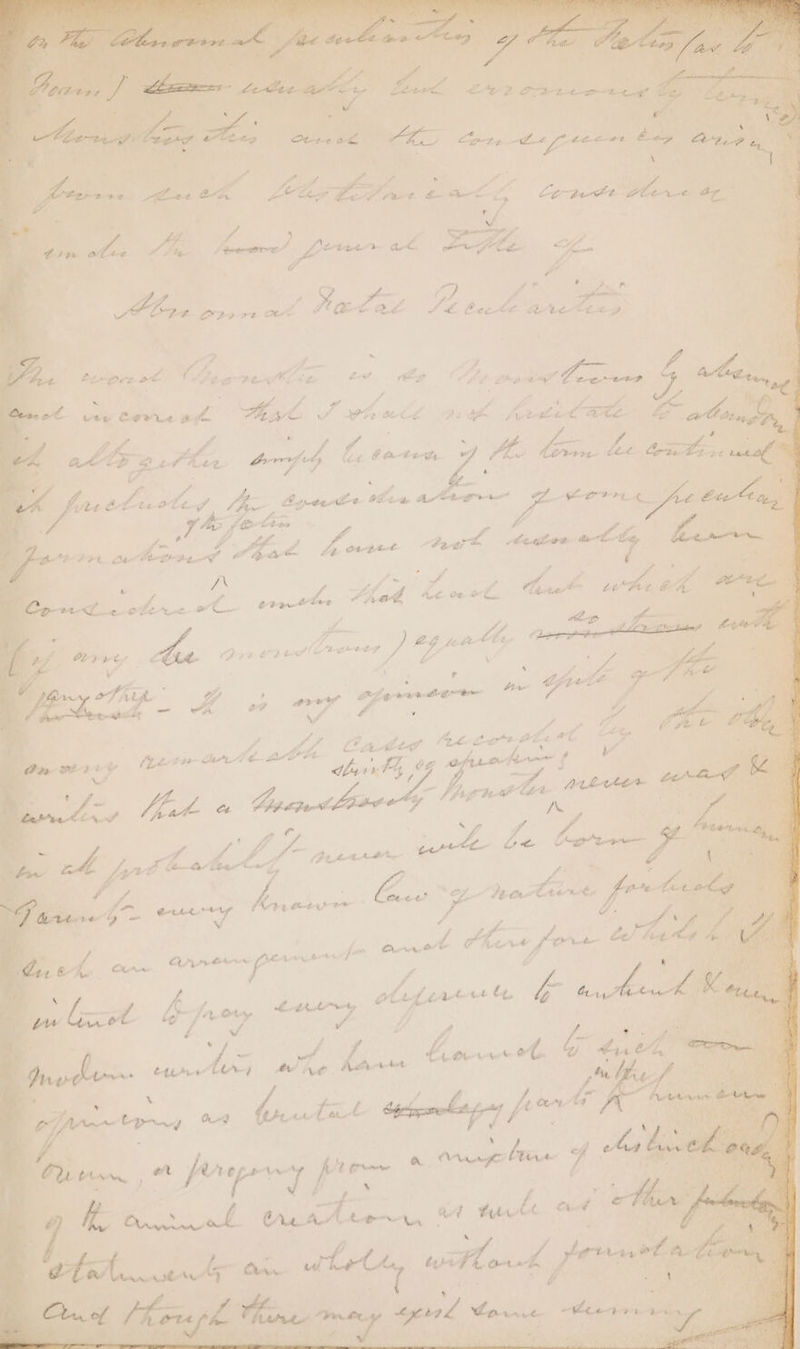 On the Abnormal peculiarities of the Fœtus (as to
Form) usually but erroneously termed
Monstrosities and the Consequences arising
from such Obstetrically considered
under the general Title of
Abnormal Fœtal Peculiarities
The word Monster is so Monstrously absurd
and incorrect that I shall not hesitate to abandon
it alltogether simply because if the term be continued
it precludes the consideration of some peculiar
of the fœtus
formations that have not usually been
Considered under that head but which are
(if any be monstrous) equally monstrous with
so
any other - It is my opinion in spite of the
many remarkable Cases recorded by the older
strictly so speaking
writers that a Monstrosity Monster never was &
in all probability never will be born of human
Parents - every known Law of nature forbids
such an arrangement and therefore whilst I
intend to pay every deference to antient & even
modern writers who have leaned to such
opinions as brutal parts human
in the
or progeny from a mixture of distinct orders
of the animal creation as well as other
statements are wholly without foundation
And though there may exist some seeming